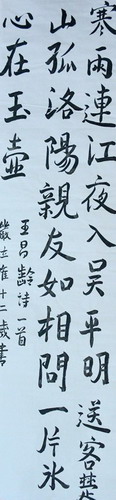 寒雨連江夜入吳平明送客楚
山孤洛陽親友如相問一片氷
心在玉壺
王昌齡詩一首
十二歲書